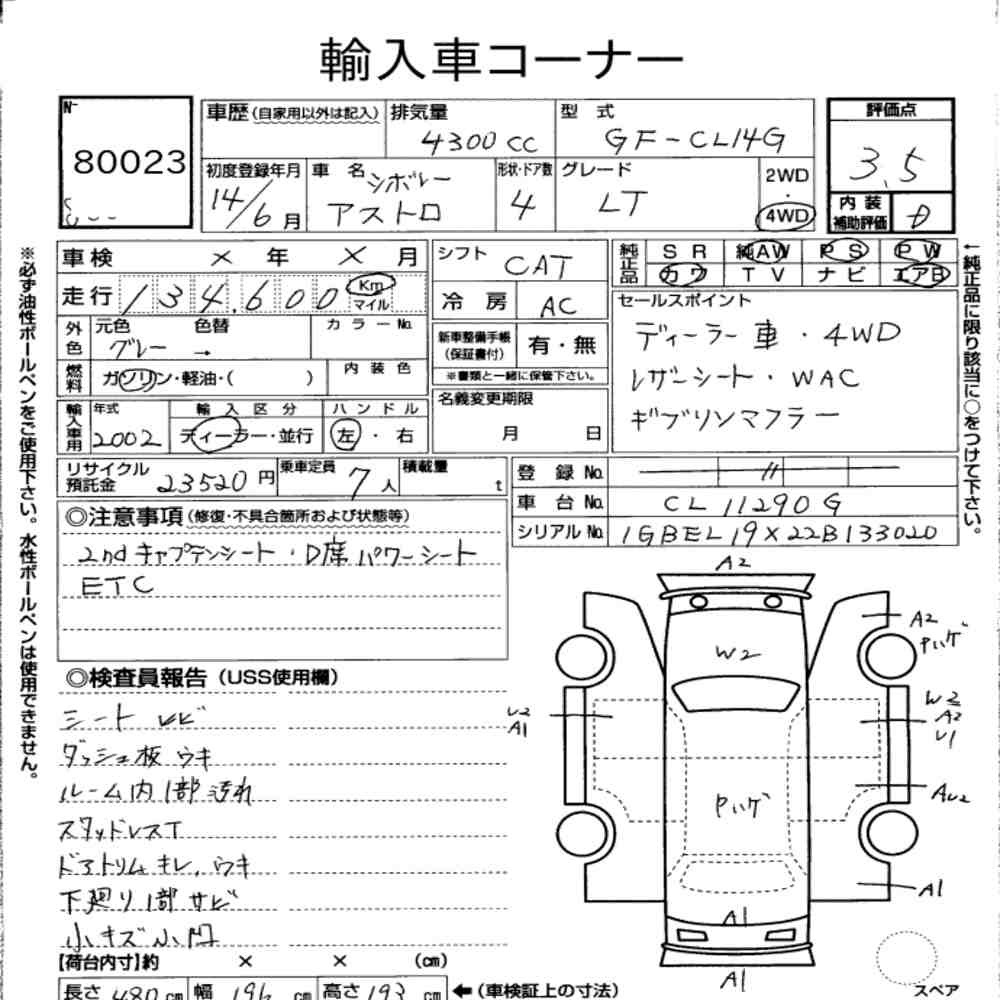 輸入車コーナー
№
80023
車歴(自家用以外は記入)
排気量
4300cc
型式
GF-CL14G
初度登録年月
14/6月
車名
シボレー
アストロ
形状・ドア数
4
グレード
LT
2WD
・
4WD
評価点
3.5
内装
補助評価
D
※必ず油性ボールペンをご使用下さい。水性ボールペンは使用できません。
車検 × 年 × 月
走行 134,600 Km
マイル
外色
元色 色替
グレー →
カラーNo.
燃料
ガソリン・軽油・( )
内装色
輸入車用
年式
2002
輸入区分
ディーラー・並行
ハンドル
左・右
シフト
CAT
冷房
AC
新車整備手帳
(保証書付)
有・無
※書類と一緒に保管下さい。
名義変更期限
月 日
純正品
SR 純AW PS PW
カワ TV ナビ エアB
セールスポイント
ディーラー車・4WD
レザーシート・WAC
ギブリンマフラー
←純正品に限り該当に○をつけて下さい。
リサイクル
預託金
23520円
乗車定員
7人
積載量
t
登録No.
〃
車台No.
CL11290G
シリアルNo.
1GBEL19X22B133020
◎注意事項(修復・不具合箇所および状態等)
2ndキャプテンシート・D席パワーシート
ETC
◎検査員報告(USS使用欄)
シート シビ
ダッシュ板ウキ
ルーム内1部汚れ
スタッドレスT
ドアトリムキレ、ウキ
下廻り1部サビ
小キズ小凹
A2
W2
A2
Pハゲ
U2
A1
W2
A2
U1
Pハゲ
AU2
A1
A1
A1
スペア
【荷台内寸】約 × × (cm)
長さ 480cm 幅 196cm 高さ 193cm ←(車検証上の寸法)